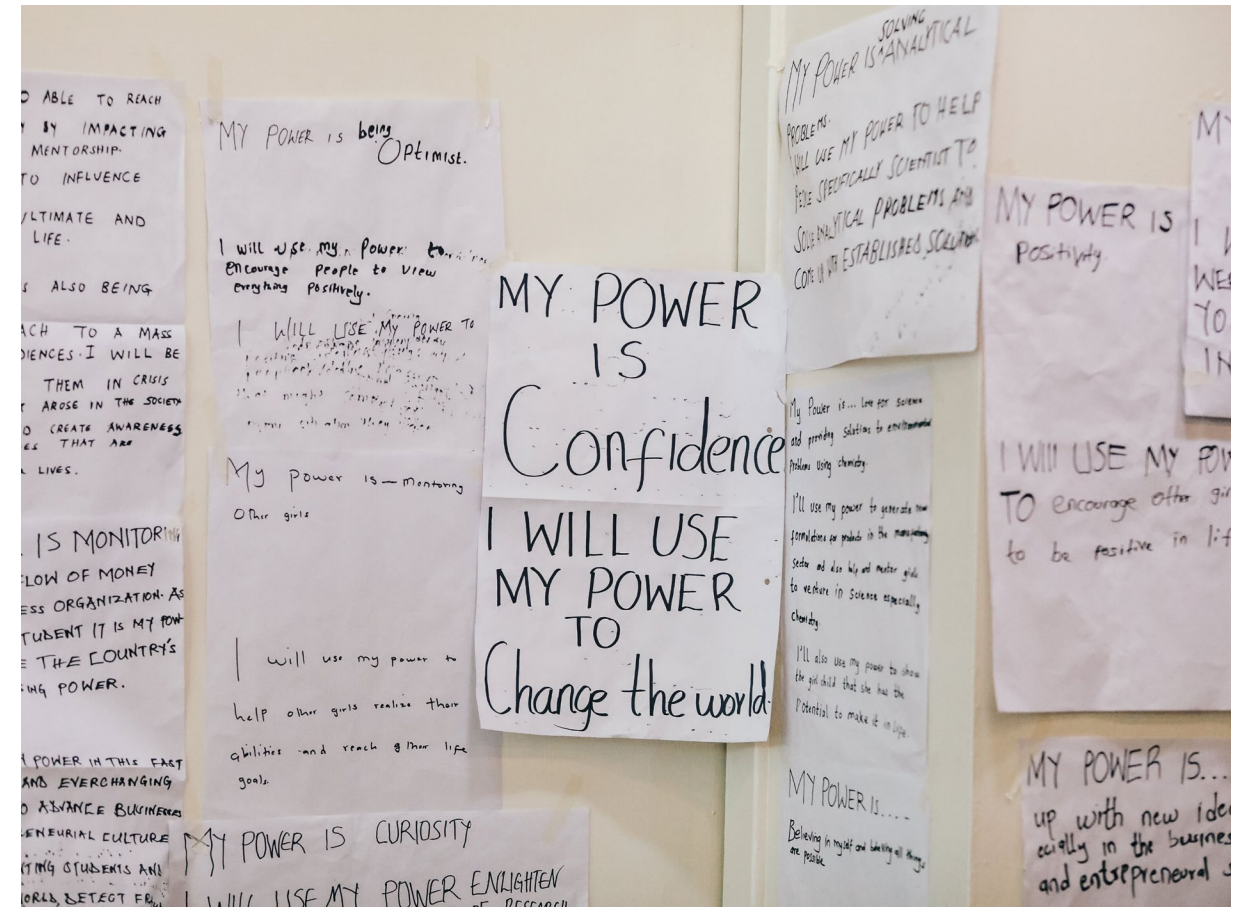 O ABLE TO REACH
Y BY IMPACTING
MENTORSHIP.
TO INFLUENCE
ULTIMATE AND
LIFE.
S ALSO BEING
ACH TO A MASS
DIENCES. I WILL BE
THEM IN CRISIS
T AROSE IN THE SOCIETY
O CREATE AWARENESS
ES THAT ARE
LIVES.
IS MONITORING
FLOW OF MONEY
ESS ORGANIZATION. AS
TUDENT IT IS MY POW
E THE COUNTRY'S
ING POWER.
Y POWER IN THIS FAST
AND EVERCHANGING
O ADVANCE BUSINESS
ENEURIAL CULTURE
TING STUDENTS AND
ORLD, DETECT
MY POWER IS being
Optimist.
I will use my Power to
encourage People to view
everything Positively.
I WILL USE MY POWER TO
My power is — Montoring
Other girls
I will use my power to
help other girls realize their
abilities and reach their life
goals.
MY POWER IS CURIOSITY
I WILL USE MY POWER ENLIGHTEN
RESEARCH
MY POWER
IS
Confidence
I WILL USE
MY POWER
TO
Change the world.
SOLVING
MY POWER IS ^ ANALYTICAL
PROBLEMS.
WILL USE MY POWER TO HELP
SPECIFICALLY SCIENTIST TO
SOLVE ANALYTICAL PROBLEMS AND
COME UP WITH ESTABLISHED SOLUTION
My Power is... Love for science
and providing solutions to environmental
Problems using chemistry.
I'll use my power to generate new
formulations for products in the
sector and also help and mentor girls
to venture in Science especially
chemistry
I'll also use my power to show
the girl child that she has the
Potential to make it in life.
MY POWER IS.....
Believing in myself and believing all things
are possible
MY POWER IS
Positivity.
I WIll USE MY POW
TO encourage other gir
to be positive in lif
MY
I W
WE
YO
IN
MY POWER IS...
up with new idea
ecially in the busines
and entrepreneural s